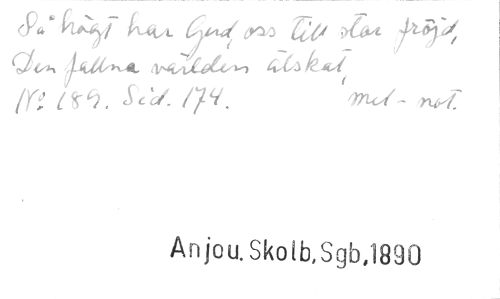 Så högt har Gud, oss till stor fröjd,
Den fallna världen älskat,
No 189. Sid. 174. mel-not.
Anjou. Skolb, Sgb, 1890